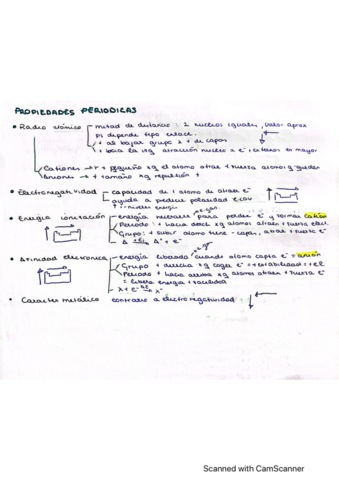 PROPIEDADES PERIODICAS
• Radio atómico mitad de distancia 2 nucleos iguales, valor aprox
ps depende tipo enlace.
+ al bajar grupo x + de capas
+ baja la xq atracción nucleo x e- externos es mayor
Cationes → + pequeño xq el atomo atrae + fuerza
Aniones → + tamaño xq repulsión +
• Electronegatividad capacidad de 1 atomo de atraer e-
ayuda a predecir polaridad
• Energía ionización energía necesaria para perder e- y formar catión
Periodo: + hacia dech xq atomos atraen + fuerza elect
Grupo: + subir atomo tiene - capas, atrae + fuerte e-
• Afinidad electronica energía liberada cuando atomo capta e- = anión
Grupo + derecha xq coger e- = + estabilidad = + el
Periodo + hacia arriba xq atomos atraen + fuerza e-
= libera energia + facilidad
• Caracter metálico contrario a electronegatividad
Scanned with CamScanner